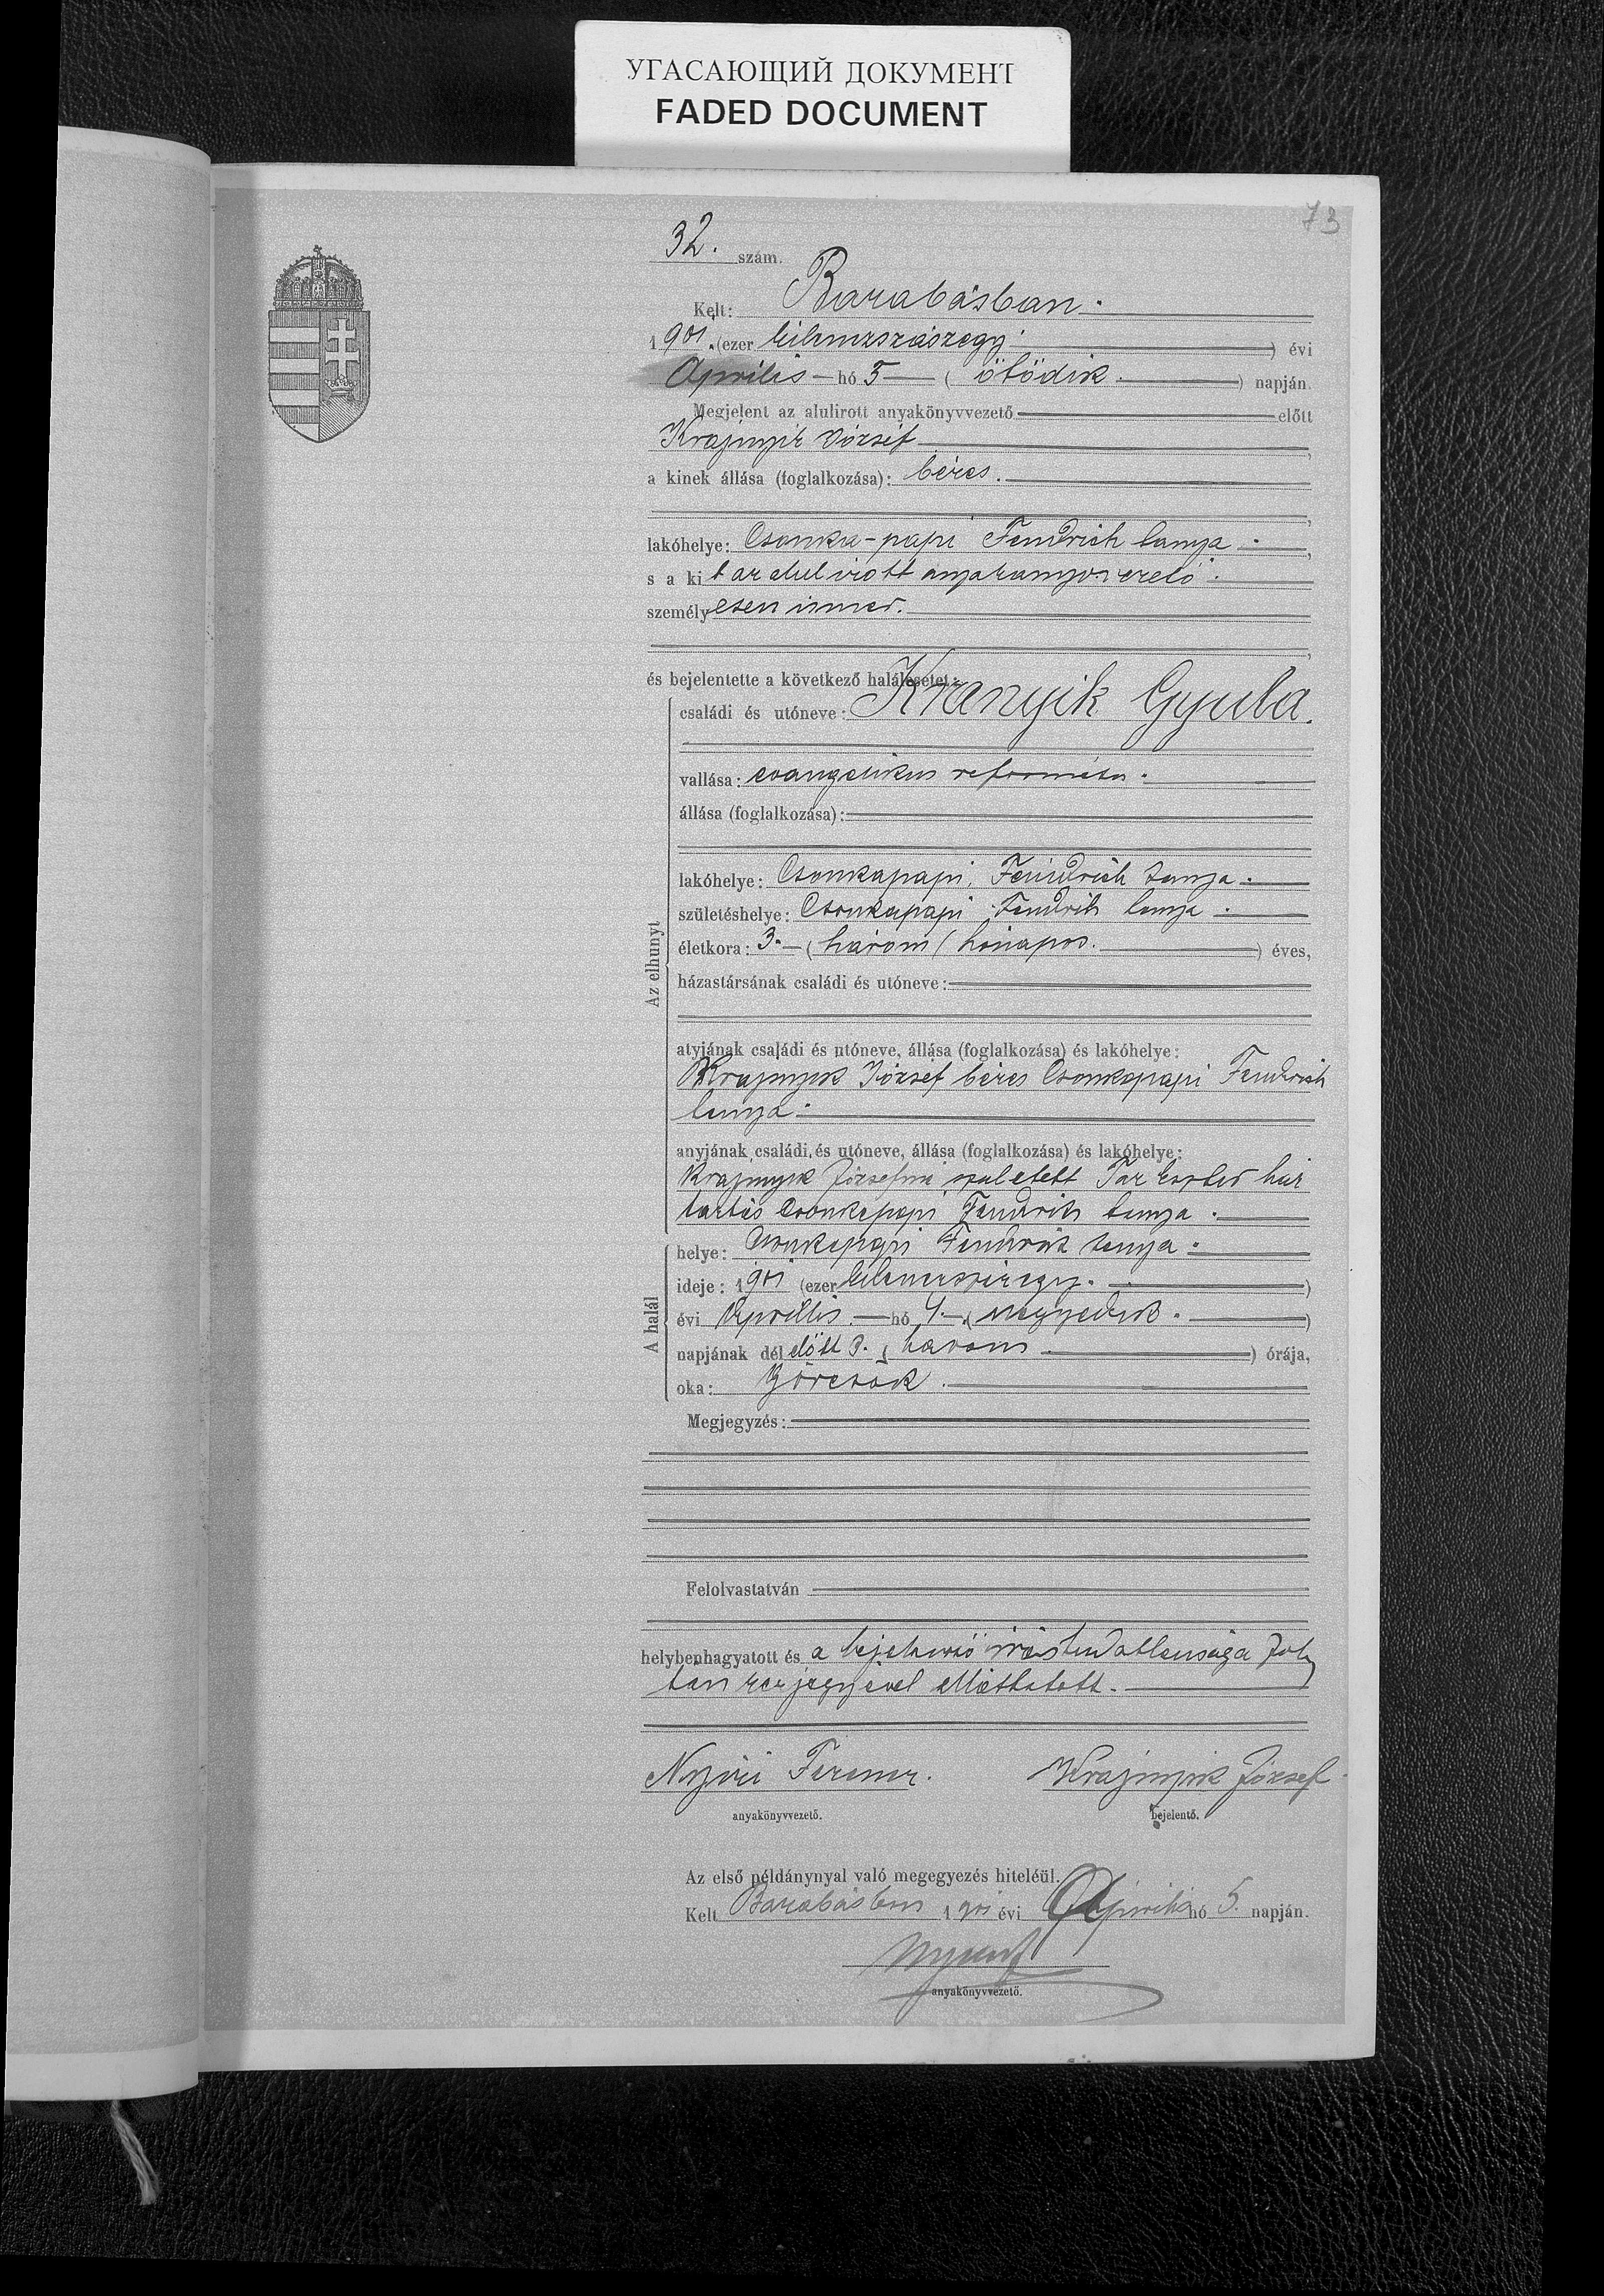 УГАСАЮЩИЙ ДОКУМЕНТ
FADED DOCUMENT
73
32. szám.
Kelt: Barabásban.
1901. (ezer kilenczszászegy) évi
Április hó 5 (ötödik) napján.
Megjelent az alulirott anyakönyvvezető előtt
Krajnyik József,
a kinek állása (foglalkozása): béres.
lakóhelye: Csonka-papi Fendrich tanya.,
s a kit az alulirott
személyesen ismer.
és bejelentette a következő halálesetet:
Az elhunyt
családi és utóneve: Kranyik Gyula.
vallása: evangelikus reformátu.
állása (foglalkozása):
lakóhelye: Csonkapapi, Fendrich tanya.
születéshelye: Csonkapapi Fendrich tanya.
életkora: 3. (három) hónapos.) éves,
házastársának családi és utóneve:
atyjának családi és utóneve, állása (foglalkozása) és lakóhelye:
Krajnyik József béres Csonkapapi Fendrich
tanya.
anyjának családi és utóneve, állása (foglalkozása) és lakóhelye:
Krajnyik Józsefné született Tar Eszter ház
tartás Csonkapapi Fendrich tanya.
A halál
helye: Csonkapapi Fendrich tanya.
ideje: 1901 (ezer kilenczszázegy.)
évi Április. hó 4. (negyedik.)
napjának dél előtt 3. (három) órája,
oka: Görcsök.
Megjegyzés:
Felolvastatván
helybenhagyatott és a bejelentő irástudatlansága foly
tán kézjegyével elláttatott.
Nyíri Ferencz. Krajnyik József
anyakönyvvezető. bejelentő.
Az első példánynyal való megegyezés hiteléül.
Kelt Barabásban 1901 évi Április hó 5. napján.
anyakönyvvezető.